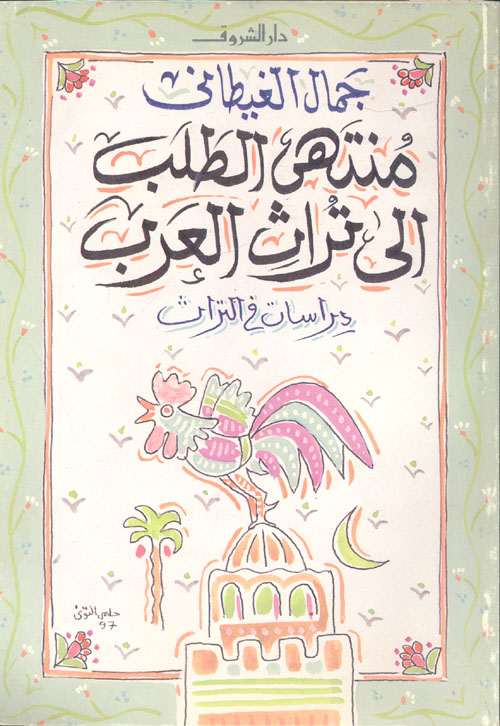 دار الشروق
جمال الغيطانى
مُنتَهى الطلب
الى تُراثِ العَرب
دراسات في التراث
حلمى التونى
97